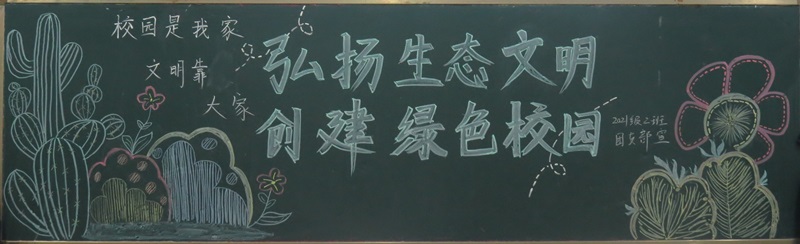 校园是我家
文明靠
大家
弘扬生态文明
创建绿色校园
2021级2班
团支部宣